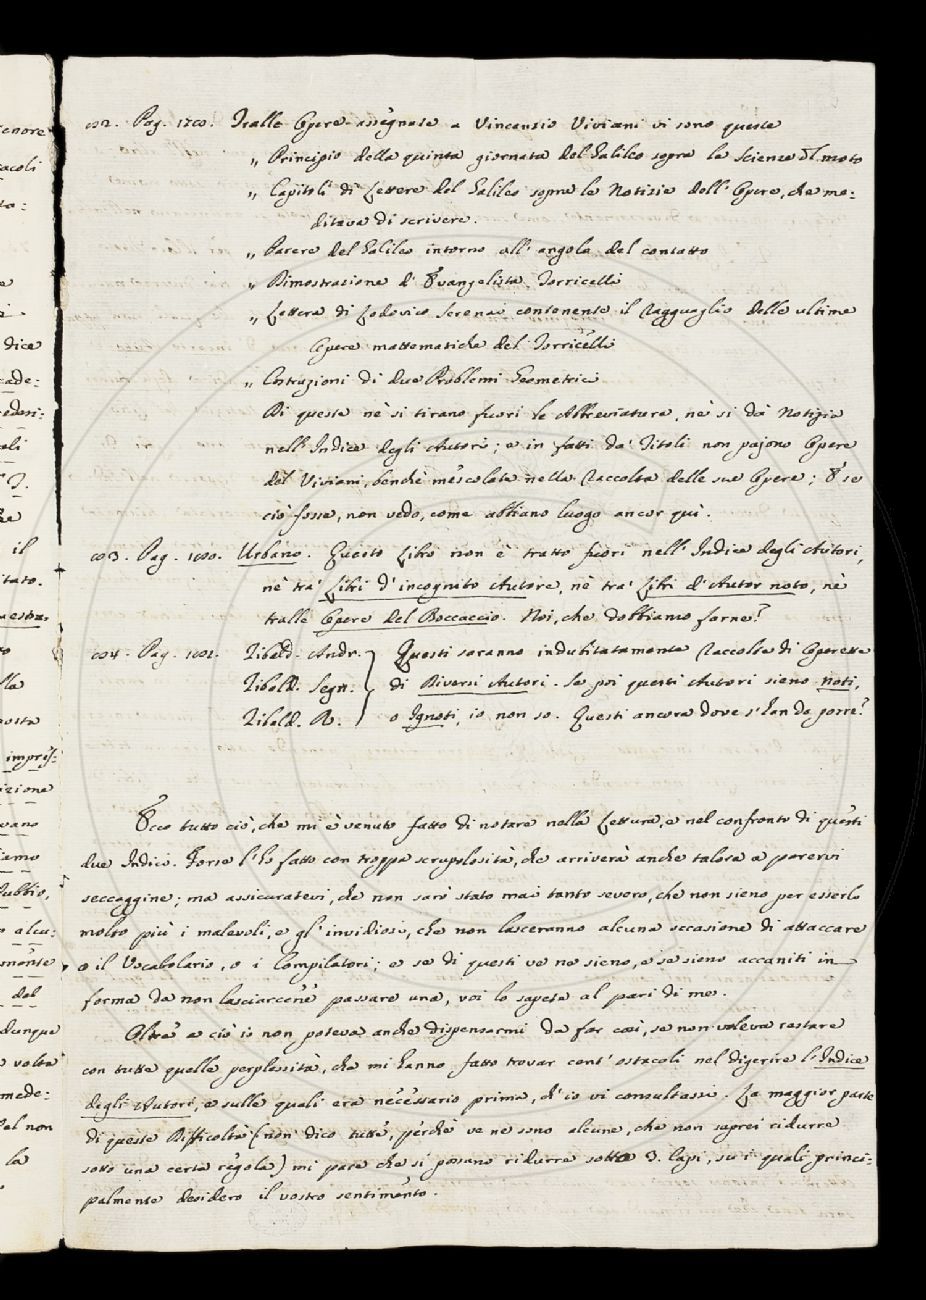 enore
acoli
to:
e
i
dice
cade:
ederi:
ali
he
il
itato.
uesta,
to
lla
posta
impris:
izione
vano
iamo
dubbio,
o alcu:
mente
del
dunque
e volta
mede:
del non
la
Pag. 170. Tralle Opere assegnate a Vincenzio Viviani vi sono queste
„ Principio della quinta giornata del Galileo sopra la Scienza del moto
„ Capitoli di Lettere del Galileo sopra le Notizie dell'Opere, che me:
ditava di scrivere.
„ Parere del Galileo intorno all'angolo del contatto
„ Dimostrazione d'Evangelista Torricelli
„ Lettera di Lodovico Serenai contenente il Ragguaglio delle ultime
Opere mattematiche del Torricelli
„ Costruzioni di due Problemi Geometrici
Di queste nè si tirano fuori le Abbreviature, nè si dà Notizia
nell'Indice degli Autori; e in fatti da' Titoli non pajono Opere
del Viviani, benchè mescolate nella Raccolta delle sue Opere; E se
ciò fosse, non vedo, come abbiano luogo ancor quì.
Pag. 180. Urbano. Questo Libro non è tratto fuori nell'Indice degli Autori,
nè tra' Libri d'incognito Autore, nè tra' Libri d'Autor noto, nè
tralle Opere del Boccaccio. Noi, che dobbiamo farne?
Pag. Zibald. Andr. Questi saranno indubitatamente Raccolte di Operette
Zibald. Segn. di Diversi Autori. Se poi questi Autori sieno noti,
Zibald. R. o Ignoti, io non so. Questi ancora dove s'han da porre?
Ecco tutto ciò, che mi è venuto fatto di notare nella Lettura, e nel confronto di questi
due Indici. Forse l'ho fatto con troppa scrupolosità, che arriverà anche talora a parervi
seccaggine; ma assicuratevi, che non sarò stato mai tanto severo, che non sieno per esserlo
molto più i malevoli, e gl'invidiosi, che non lasceranno alcuna occasione di attaccare
o il Vocabolario, o i Compilatori; e se di questi ve ne sieno, e se sieno accaniti in
forma da non lasciarcene passare una, voi lo sapete al pari di me.
Oltre a ciò io non poteva anche dispensarmi da far così, se non voleva restare
con tutte quelle perplessità, che mi hanno fatto trovar cent'ostacoli nel digerire l'Indice
degli Autori, e sulle quali era necessario prima, ch'io vi consultassi. La maggior parte
di queste Difficoltà (non dico tutte, perchè ve ne sono alcune, che non saprei ridurre
sotto una certa regola) mi pare che si possano ridurre sotto 3. Capi, su i quali princi:
palmente desidero il vostro sentimento.